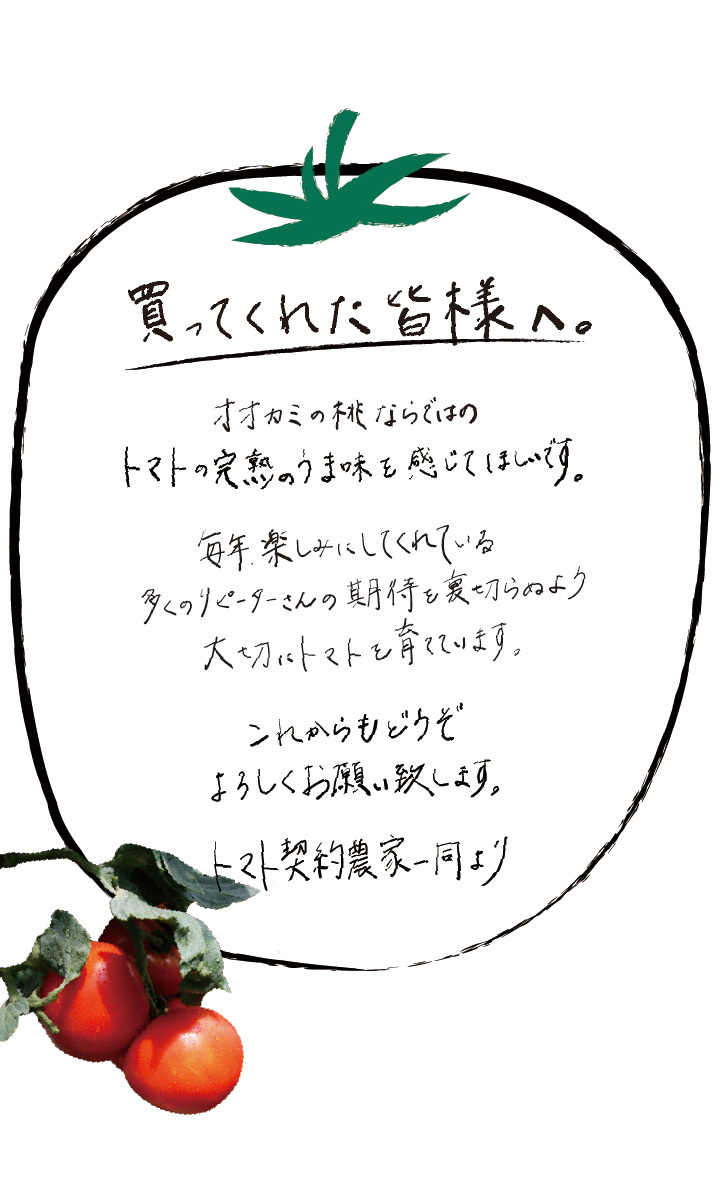 買ってくれた皆様へ。
オオカミの桃ならではの
トマトの完熟のうま味を感じてほしいです。
毎年、楽しみにしてくれている
多くのリピーターさんの期待を裏切らぬよう
大切にトマトを育てています。
これからもどうぞ
よろしくお願い致します。
トマト契約農家一同より